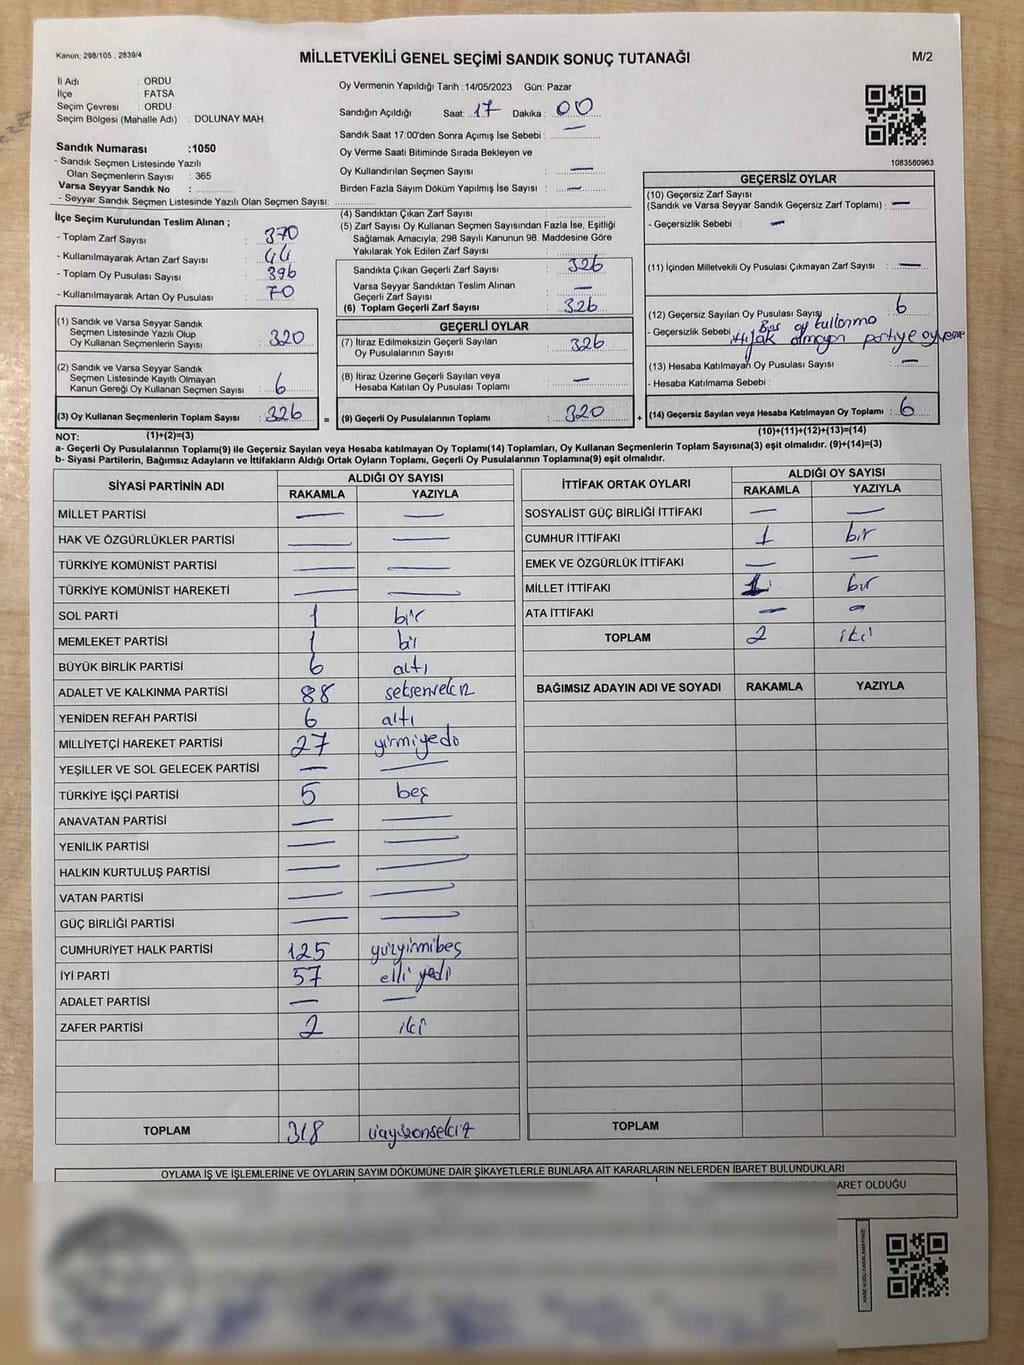 Kanun; 298/105 , 2839/4
MİLLETVEKİLİ GENEL SEÇİMİ SANDIK SONUÇ TUTANAĞI
M/2
İl Adı : ORDU
İlçe : FATSA
Seçim Çevresi : ORDU
Seçim Bölgesi (Mahalle Adı) : DOLUNAY MAH.
Oy Vermenin Yapıldığı Tarih :14/05/2023 Gün: Pazar
Sandığın Açıldığı Saat: 17 Dakika : 00
Sandık Saat 17:00'den Sonra Açımış İse Sebebi : —
Oy Verme Saati Bitiminde Sırada Bekleyen ve
Oy Kullandırılan Seçmen Sayısı : —
Birden Fazla Sayım Döküm Yapılmış İse Sayısı : —
1083580963
Sandık Numarası :1050
- Sandık Seçmen Listesinde Yazılı
Olan Seçmenlerin Sayısı : 365
Varsa Seyyar Sandık No :
- Seyyar Sandık Seçmen Listesinde Yazılı Olan Seçmen Sayısı:
İlçe Seçim Kurulundan Teslim Alınan ;
- Toplam Zarf Sayısı : 370
- Kullanılmayarak Artan Zarf Sayısı : 44
- Toplam Oy Pusulası Sayısı : 396
- Kullanılmayarak Artan Oy Pusulası : 70
(1) Sandık ve Varsa Seyyar Sandık
Seçmen Listesinde Yazılı Olup
Oy Kullanan Seçmenlerin Sayısı : 320
(2) Sandık ve Varsa Seyyar Sandık
Seçmen Listesinde Kayıtlı Olmayan
Kanun Gereği Oy Kullanan Seçmen Sayısı : 6
(3) Oy Kullanan Seçmenlerin Toplam Sayısı : 326 =
(4) Sandıktan Çıkan Zarf Sayısı :
(5) Zarf Sayısı Oy Kullanan Seçmen Sayısından Fazla İse, Eşitliği
Sağlamak Amacıyla, 298 Sayılı Kanunun 98. Maddesine Göre
Yakılarak Yok Edilen Zarf Sayısı :
Sandıkta Çıkan Geçerli Zarf Sayısı : 326
Varsa Seyyar Sandıktan Teslim Alınan
Geçerli Zarf Sayısı : —
(6) Toplam Geçerli Zarf Sayısı : 326
GEÇERLİ OYLAR
(7) İtiraz Edilmeksizin Geçerli Sayılan
Oy Pusulalarının Sayısı : 326
(8) İtiraz Üzerine Geçerli Sayılan veya
Hesaba Katılan Oy Pusulası Toplamı : —
(9) Geçerli Oy Pusulalarının Toplamı : 320 +
GEÇERSİZ OYLAR
(10) Geçersiz Zarf Sayısı
(Sandık ve Varsa Seyyar Sandık Geçersiz Zarf Toplamı) : —
- Geçersizlik Sebebi : —
(11) İçinden Milletvekili Oy Pusulası Çıkmayan Zarf Sayısı : —
(12) Geçersiz Sayılan Oy Pusulası Sayısı : 6
- Geçersizlik Sebebi : Boş oy kullanma
ittifak olmayan partiye oy verme
(13) Hesaba Katılmayan Oy Pusulası Sayısı : —
- Hesaba Katılmama Sebebi :
(14) Geçersiz Sayılan veya Hesaba Katılmayan Oy Toplamı : 6
NOT: (1)+(2)=(3)
(10)+(11)+(12)+(13)=(14)
a- Geçerli Oy Pusulalarının Toplamı(9) ile Geçersiz Sayılan veya Hesaba katılmayan Oy Toplamı(14) Toplamları, Oy Kullanan Seçmenlerin Toplam Sayısına(3) eşit olmalıdır. (9)+(14)=(3)
b- Siyasi Partilerin, Bağımsız Adayların ve İttifakların Aldığı Ortak Oyların Toplamı, Geçerli Oy Pusulalarının Toplamına(9) eşit olmalıdır.
SİYASİ PARTİNİN ADI ALDIĞI OY SAYISI
RAKAMLA YAZIYLA
MİLLET PARTİSİ — —
HAK VE ÖZGÜRLÜKLER PARTİSİ — —
TÜRKİYE KOMÜNİST PARTİSİ — —
TÜRKİYE KOMÜNİST HAREKETİ — —
SOL PARTİ 1 bir
MEMLEKET PARTİSİ 1 bir
BÜYÜK BİRLİK PARTİSİ 6 altı
ADALET VE KALKINMA PARTİSİ 88 seksensekiz
YENİDEN REFAH PARTİSİ 6 altı
MİLLİYETÇİ HAREKET PARTİSİ 27 yirmiyedi
YEŞİLLER VE SOL GELECEK PARTİSİ — —
TÜRKİYE İŞÇİ PARTİSİ 5 beş
ANAVATAN PARTİSİ — —
YENİLİK PARTİSİ — —
HALKIN KURTULUŞ PARTİSİ — —
VATAN PARTİSİ — —
GÜÇ BİRLİĞİ PARTİSİ — —
CUMHURİYET HALK PARTİSİ 125 yüzyirmibeş
İYİ PARTİ 57 elli yedi
ADALET PARTİSİ — —
ZAFER PARTİSİ 2 iki
TOPLAM 318 üçyüzonsekiz
İTTİFAK ORTAK OYLARI ALDIĞI OY SAYISI
RAKAMLA YAZIYLA
SOSYALİST GÜÇ BİRLİĞİ İTTİFAKI — —
CUMHUR İTTİFAKI 1 bir
EMEK VE ÖZGÜRLÜK İTTİFAKI — —
MİLLET İTTİFAKI 1 bir
ATA İTTİFAKI — —
TOPLAM 2 iki
BAĞIMSIZ ADAYIN ADI VE SOYADI RAKAMLA YAZIYLA
TOPLAM
OYLAMA İŞ VE İŞLEMLERİNE VE OYLARIN SAYIM DÖKÜMÜNE DAİR ŞİKAYETLERLE BUNLARA AİT KARARLARIN NELERDEN İBARET BULUNDUKLARI
ARET OLDUĞU